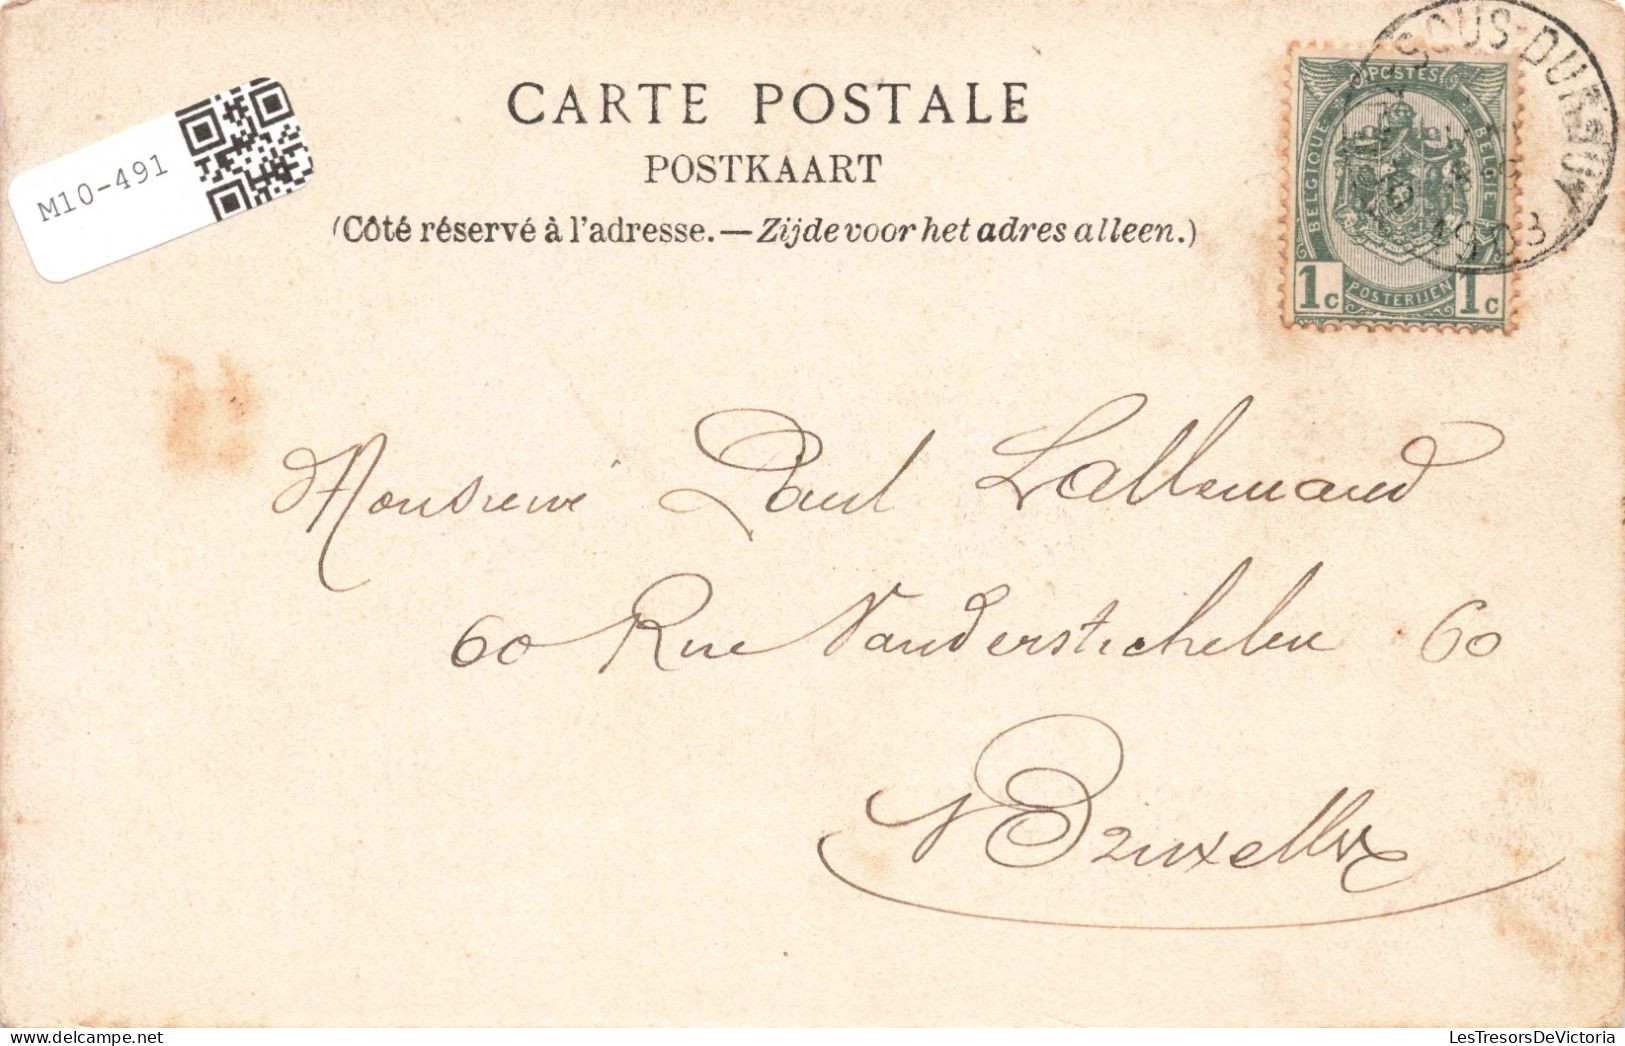 M10-491
CARTE POSTALE
POSTKAART
(Côté réservé à l'adresse. — Zijde voor het adres alleen.)
SOUS-DURBUY
1903
POSTES
BELGIQUE
BELGIE
1c
POSTERIJEN
1c
Monsieur Paul Lallemand
60 Rue Vanderstichelen 60
Bruxelles
LesTresorsDeVictoria